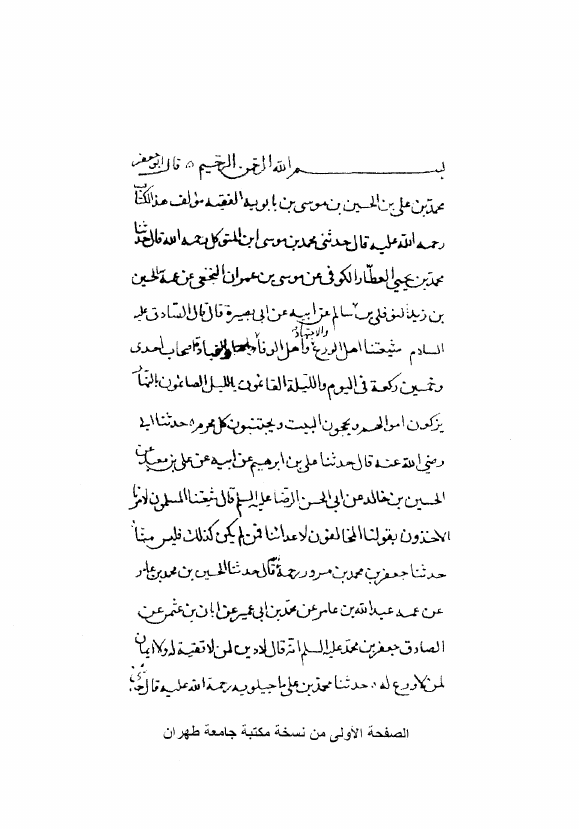 بسم الله الرحمن الرحيم قال ابو جعفر
محمد بن علي بن الحسين بن موسى بن بابويه الفقيه مؤلف هذا الكتاب
رحمه الله عليه قال حدثنى محمد بن موسى ابن المتوكل رحمه الله قال حدثنا
محمد بن يحيى العطار الكوفى عن موسى بن عمران النخعى عن عمه الحسين
بن زيد النوفلى بن سالم عن ابيه عن ابى بصير قال قال الصادق عليه
السلام شيعتنا اهل الورع والاجتهاد واهل الوفا اصحاب احدى
وخمسين ركعة فى اليوم والليلة القائمون بالليل الصائمون بالنهار
يزكون اموالهم ويحجون البيت ويجتنبون كل محرم حدثنا ابى
رضى الله عنه قال حدثنا على بن ابرهيم عن ابيه عن على بن معبد عن
الحسين بن خالد عن ابى الحسن الرضا عليه السلم قال شيعتنا المسلمون لامرنا
الاخذون بقولنا المخالفون لاعدائنا فمن لم يكن كذلك فليس منا
حدثنا جعفر بن محمد بن مسرور رحمه الله قال حدثنا الحسين بن محمد بن عامر
عن عمه عبد الله بن عامر عن محمد بن ابى عمير عن ابان بن عثمن عن
الصادق جعفر بن محمد عليه السلم انه قال لا دين لمن لا تقية له ولا ايمان
لمن لا ورع له حدثنا محمد بن على ماجيلويه رحمة الله عليه قال
الصفحة الأولى من نسخة مكتبة جامعة طهران